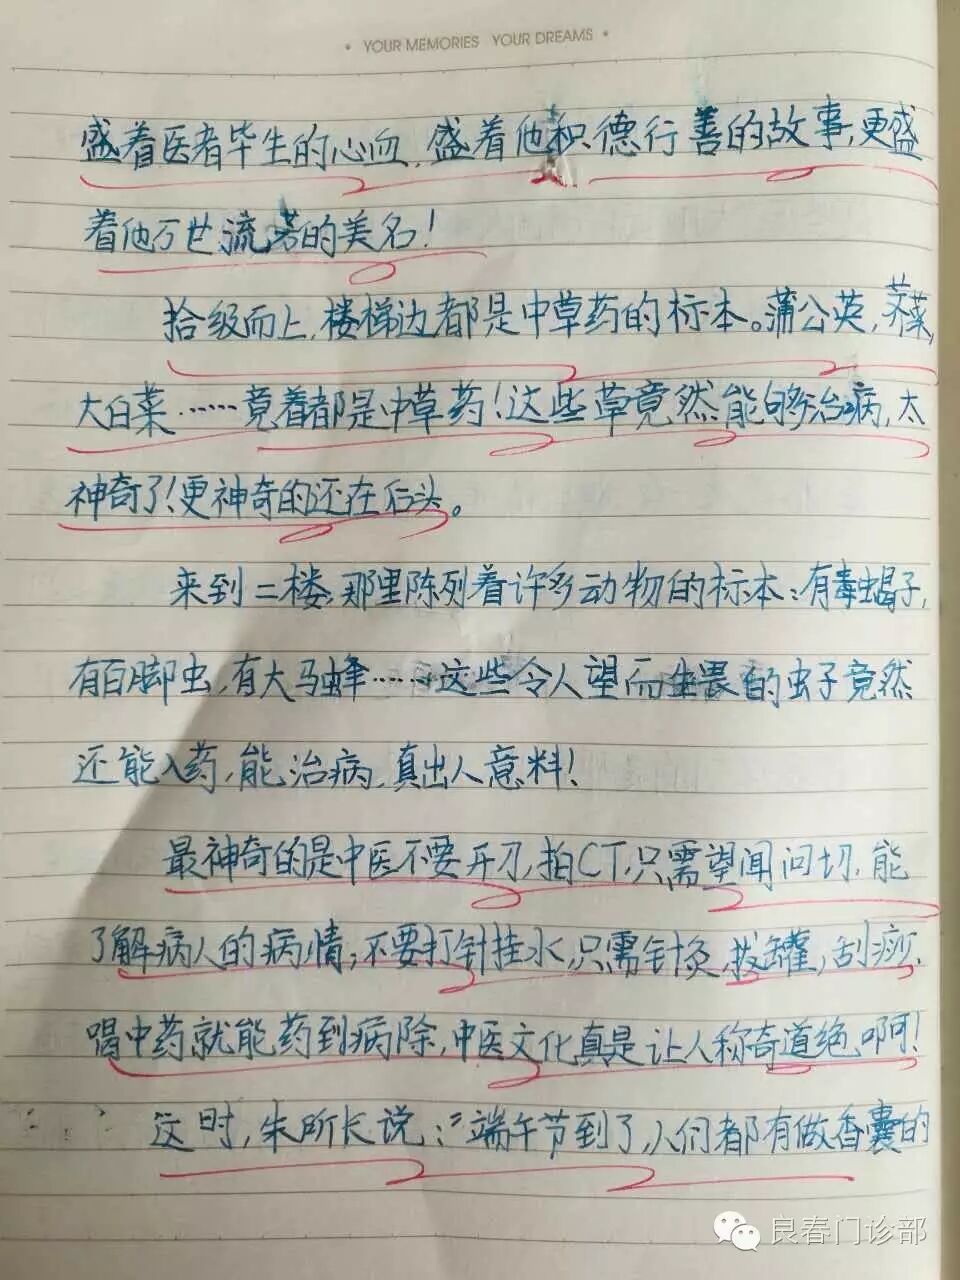 • YOUR MEMORIES YOUR DREAMS •
盛着医者毕生的心血,盛着他积德行善的故事,更盛
着他万世流芳的美名!
拾级而上,楼梯边都是中草药的标本。蒲公英,荠菜,
大白菜……竟着都是中草药!这些草竟然能够治病,太
神奇了!更神奇的还在后头。
来到二楼,那里陈列着许多动物的标本:有毒蝎子,
有百脚虫,有大马蜂……这些令人望而生畏的虫子竟然
还能入药,能治病,真出人意料!
最神奇的是中医不要开刀,拍CT,只需望闻问切,能
了解病人的病情;不要打针挂水,只需针灸,拔罐,刮痧,
喝中药就能药到病除,中医文化真是让人称奇道绝啊!
这时,朱所长说:“端午节到了,人们都有做香囊的
良春门诊部